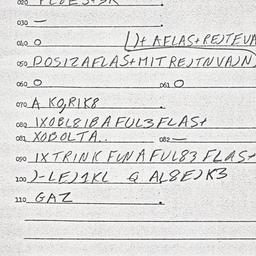 030 —
040 O L)+ AFLAS+REJTEVA
050 DOSIZAFLAS+MITREJTNVAJN)
060 O 061 O
070 A KORIK8
080 IXOBL8IBAFUL3FLAS+
081 XOBOLTA.. 082 —
090 IXTRINK FUNAFUL83FLAS+
100 )-LEJ1KL Q AL8EJK3
110 GAZ